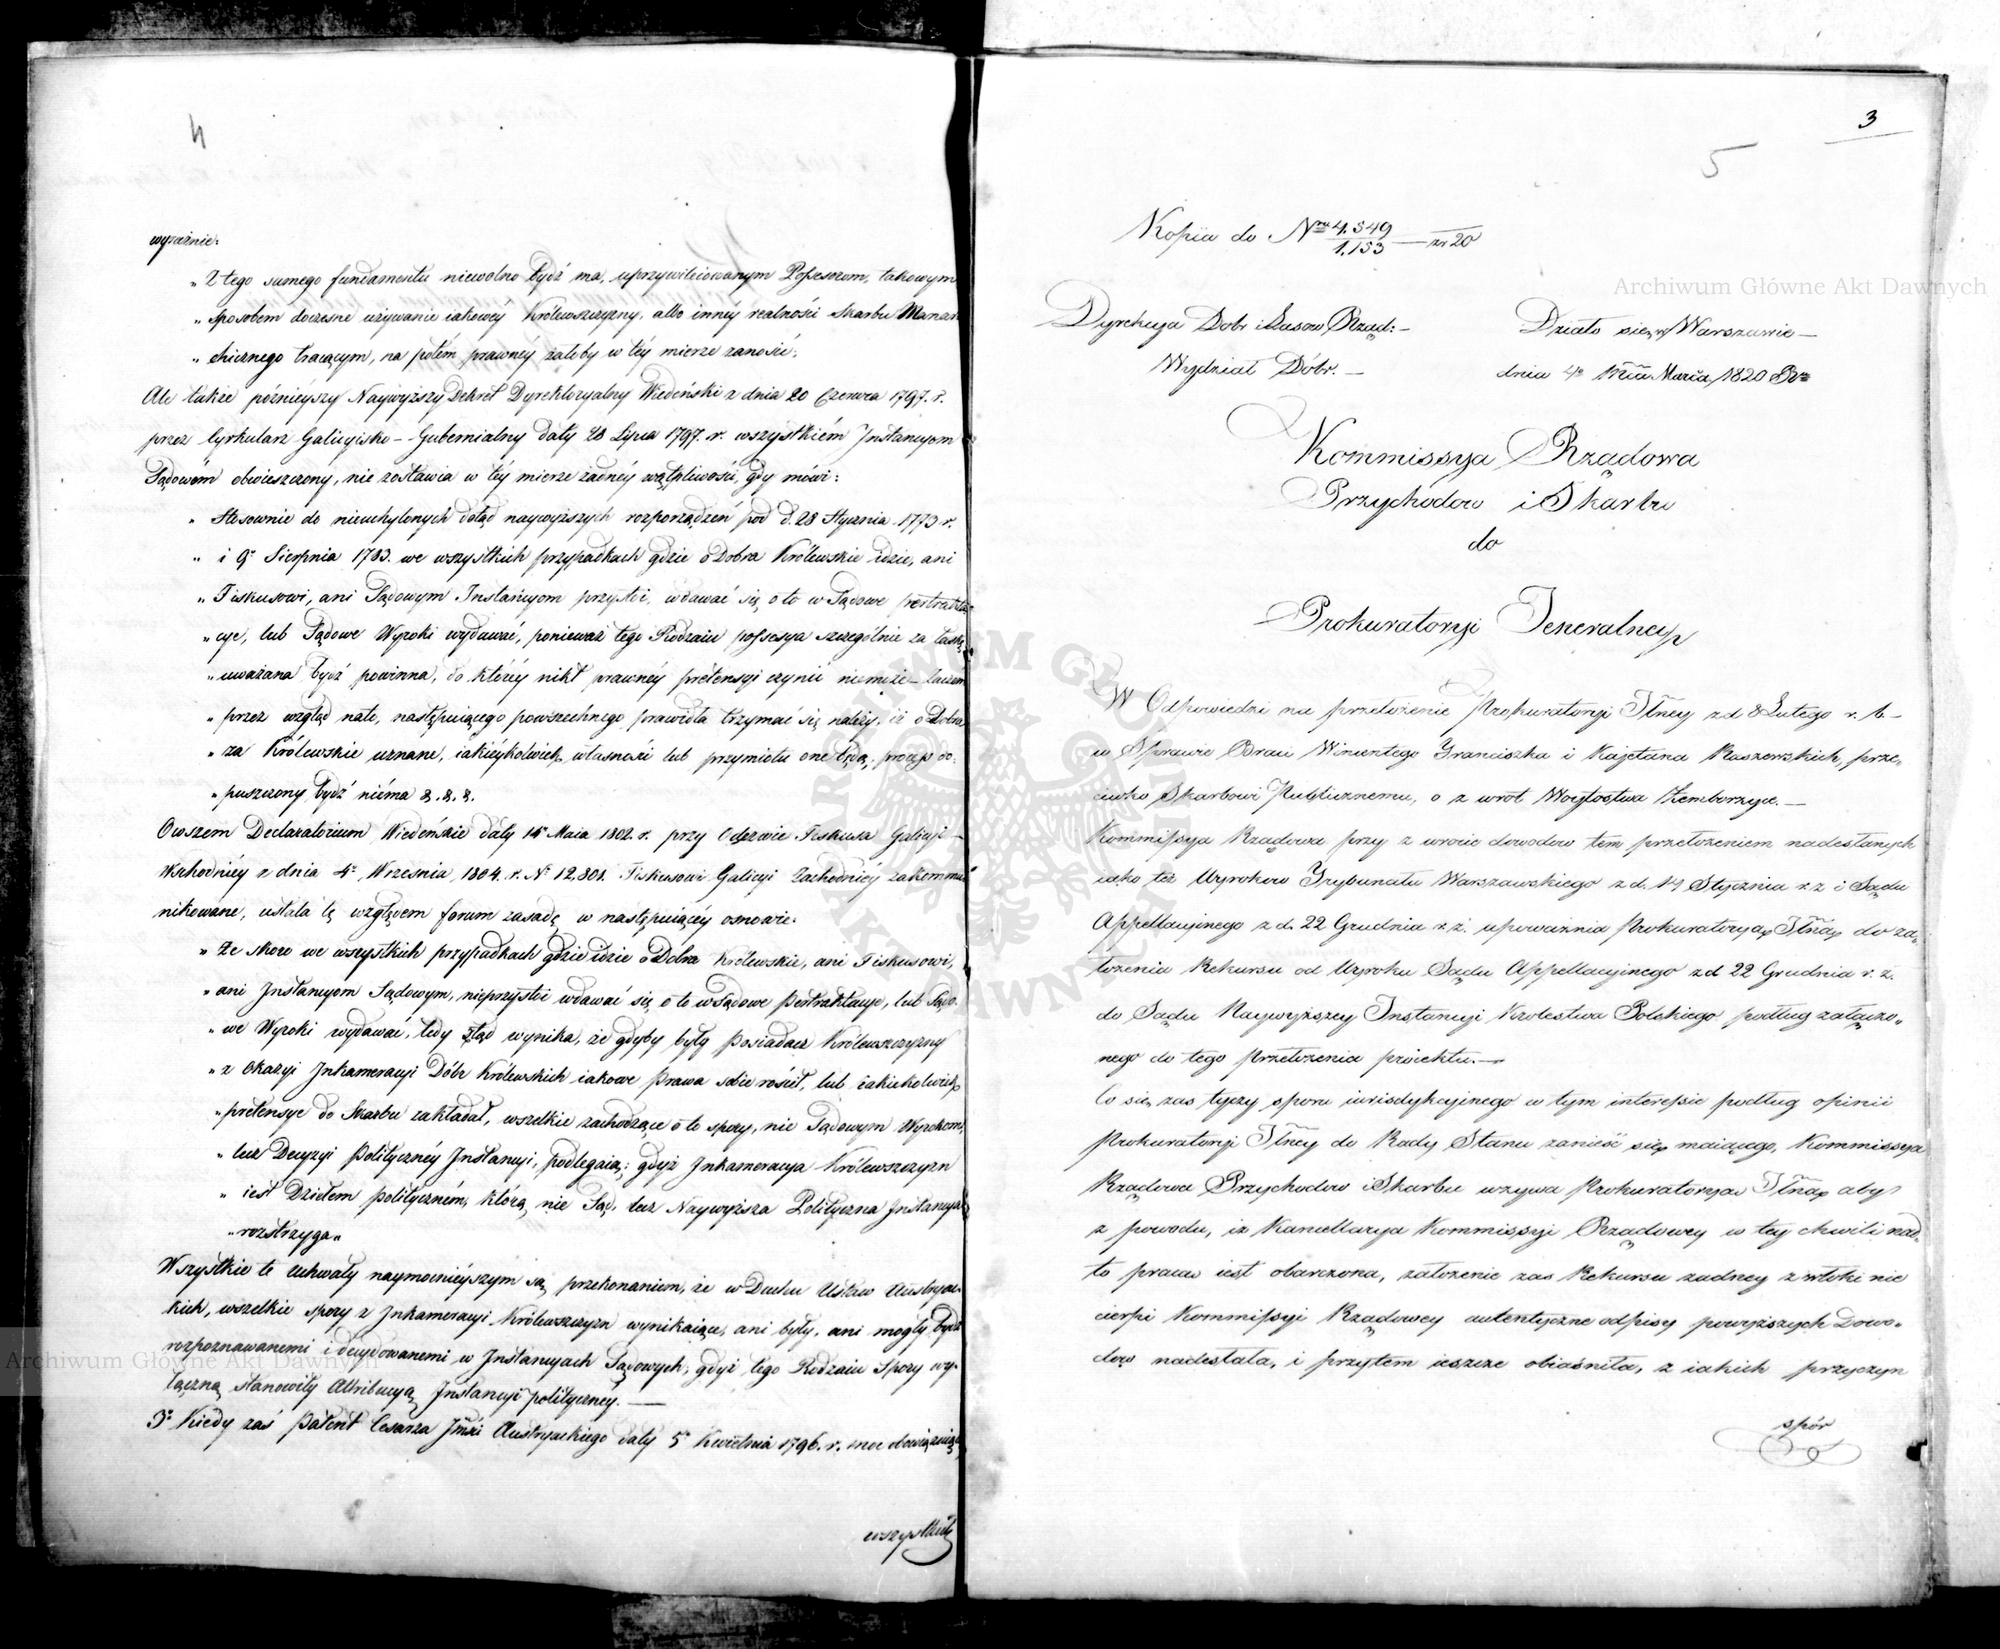 4
wyraźnie:
„ Z tego samego fundamentu niewolno bydź ma, uprzywileiowanym Possesorom, takowym
„ sposobem doczesne używanie iakowéy Królewszczyzny, albo innéy realności Skarbu Monar
„ chicznego tracącym, na potém prawnéy żałoby w téy mierze zanosić.
Ale także późnieyszy Naywyższy Dekret Dyrektoryalny Wiedeński z dnia 20 Czerwca 1797. r.
przez Cyrkularz Galicyisko-Gubernialny daty 28 Lipca 1797. r. wszystkiém Instancyom
Sądowém obwieszczony, nie zostawia w téy mierze żadnéy wątpliwości, gdy mówi:
„ Stosownie do nieuchylonych dotąd naywyższych rozporządzeń pod d. 28 Stycznia 1773 r.
„ i 9º Sierpnia 1783. we wszystkich przypadkach gdzie o Dobra Królewskie idzie, ani
„ Fiskusowi, ani Sądowym Instancyom przystoi, wdawać się o to w Sądowe pertrakta
„ cye, lub Sądowe Wyroki wydawać, ponieważ tego Rodzaiu possesya szczególnie za łaskę
„ uważana bydź powinna, do któréy nikt prawnéy pretensyi czynić niemoże – zaczém
„ przez wzgląd na to, następuiącego powszechnego prawidła trzymać się należy, iż o Dobra
„ za Królewskie uznane, iakiéykolwiek własności lub przymiotu one będą, proceß do:
„ puszczony bydź niéma &. &. &.
Owszem Declaratorium Wiedeńskie daty 14º Maia 1802. r. przy Odezwie Fiskusa Galicyi –
Wschodniéy z dnia 4º Września 1804. r. Nº 12,801. Fiskusowi Galicyi Zachodniéy zakommu
nikowane, ustala tę względem forum zasadę w następuiącéy osnowie:
„ Że skoro we wszystkich przypadkach gdzie idzie o Dobra Królewskie, ani Fiskusowi,
„ ani Instancyom Sądowym, nieprzystoi wdawać się o to w Sądowe Pertraktacye, lub Sądo.
„ we Wyroki wydawać, tedy ztąd wynika, że gdyby były Posiadacz Królewszczyzny
„ z Okazyi Inkameracyi Dóbr Królewskich iakowe Prawa sobie rościł, lub iakiekolwiek
„ pretensye do Skarbu zakładał, wszelkie zachodzące o to spory, nie Sądowym Wyrokom,
„ lecz Decyzyi Polityczney Instancyi, podlegaią; gdyż Inkameracya Królewszczyzn
„ iest Dziełem politycznem, którą nie Sąd, lecz Naywyższa Polityczna Instancya
„ rozstrzyga„
Wszystkie te uchwały naymocnieyszym są przekonaniem, że w Duchu Ustaw Austryac.
kich, wszelkie spory z Inkameracyi Królewszczyzn wynikaiące, ani były, ani mogły bydź
rozpoznawanemi i decydowanemi w Instancyach Sądowych, gdyż tego Rodzaiu Spory wy.
łączną stanowiły Attribucyą Instancyi polityczney. —
3º Kiedy zaś Patent Cesarza Jmści Austryackiego daty 5º Kwietnia 1796. r. moc obowiązuiącą
wszystkich
3
5
Kopia do Nru 4.549/1.153 — zr 20
Dyrekcya Dobr i Lasow Rząd: –
Działo się w Warszawie –
Wydział Dóbr. –
dnia 4º Mca Marca 1820 Ro
Kommissya Rządowa
Przychodow i Skarbu
do
Prokuratoryi Jeneralney
W Odpowiedzi na przełożenie Prokuratoryi Jlney z d 8 Lutego r. b. –
w Sprawie Braci Wincentego Franciszka i Kajetana Raszewskich, prze„
ciwko Skarbowi Publicznemu, o z wrot Woytostwa Zemborzyc. —
Kommissya Rządowa przy z wrocie dowodow tem przełożeniem nadesłanych
iako też Wyrokow Trybunału Warszawskiego z d. 14 Stycznia r. z i Sądu
Appellacyjnego z d. 22 Grudnia r. z. upoważnia Prokuratoryą Jlną do za„
łożenia Rekursu od Wyroku Sądu Appellacyjnego z d 22 Grudnia r. z.
do Sądu Naywyższey Instancyi Krolestwa Polskiego podług załączo„
nego do tego przełożenia proiektu. —
Co się zas tyczy sporu iurisdykcyjnego w tym interessie podług opinii
Prokuratoryi Jlney do Rady Stanu zanieść się maiącego, Kommissya
Rządowa Przychodow i Skarbu wzywa Prokuratoryą Jlną aby
z powodu, iż Kancellarya Kommissyi Rządowey w tey chwili nad„
to pracą iest obarczona, założenie zas Rekursu zadney zwłoki nie
cierpi Kommissyi Rządowey autentyczne odpisy powyższych Dowo„
dow nadesłała, i przytem ieszcze obiaśniła, z iakich przyczyn
spór
Archiwum Główne Akt Dawnych
Archiwum Główne Akt Dawnych
ARCHIWUM GŁÓWNE AKT DAWNYCH